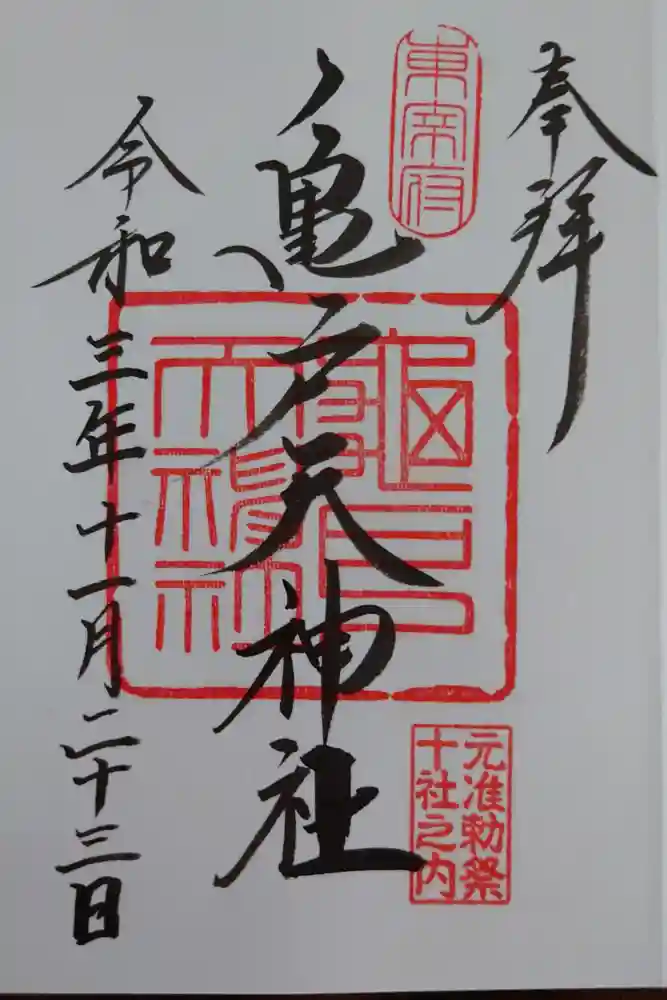 奉拝
東宰府
亀戸天神社
龜戸天神社
元准勅祭
十社之内
令和三年十一月二十三日